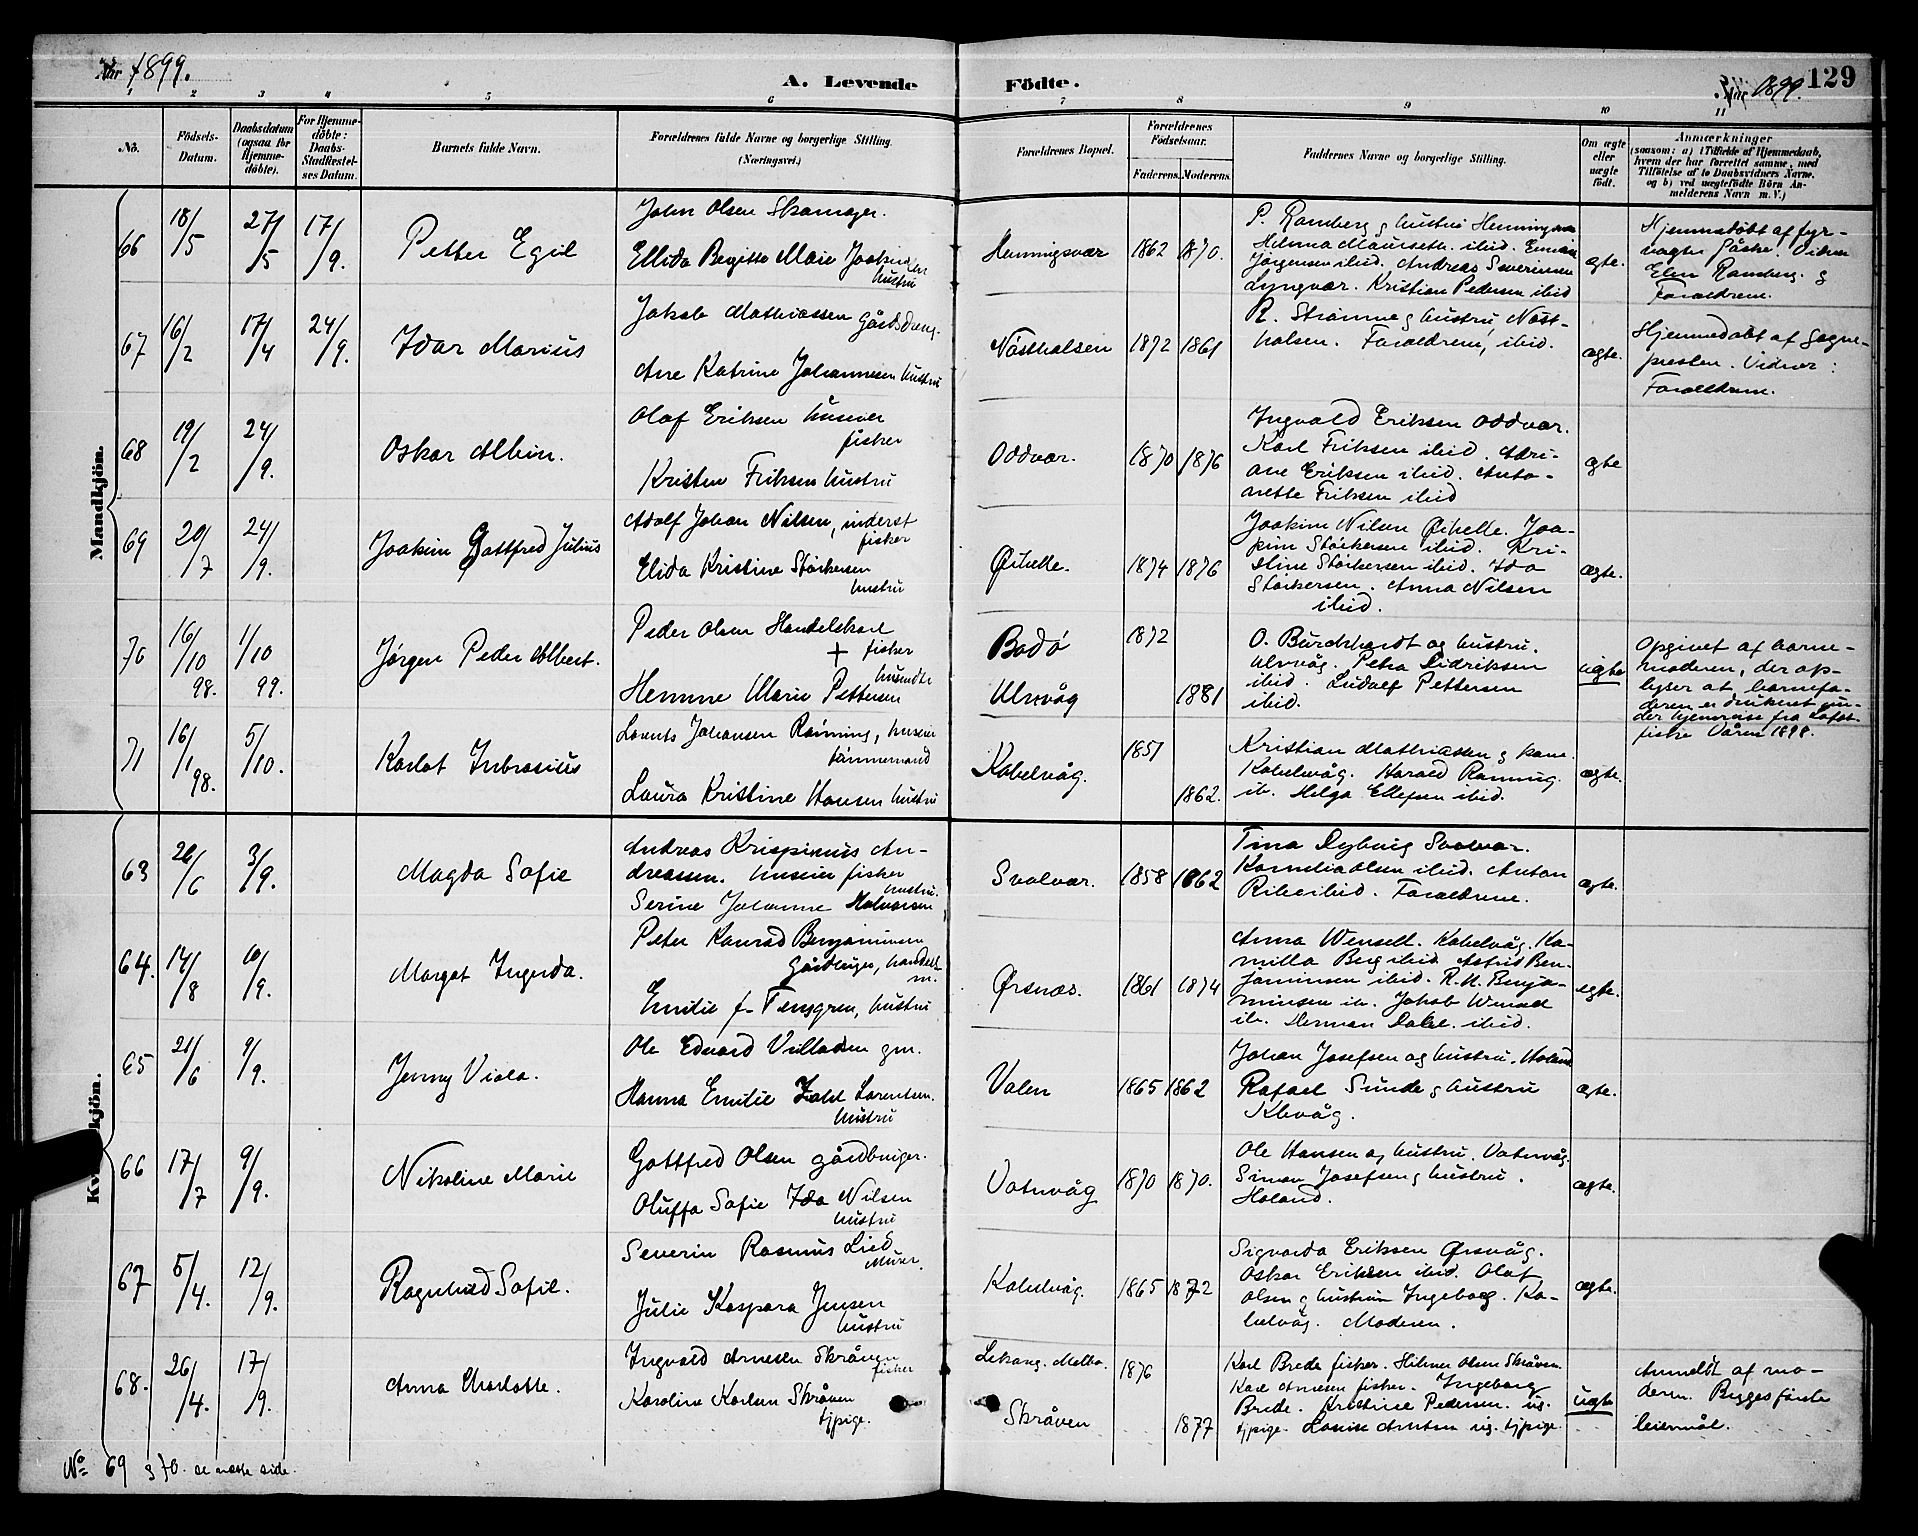 Aar 1899.
A. Levende Födte.
Aar 1899. 129
1 2 3 4 5 6 7 8 9 10 11
No.
Födsels-
Datum.
Daabsdatum
(ogsaa for
Hjemme-
döbte).
For Hjemme-
döbte:
Daabs-
Stadfæstel-
ses Datum.
Barnets fulde Navn.
Forældrenes fulde Navne og borgerlige Stilling.
(Næringsvei.)
Forældrenes Bopæl.
Forældrenes
Födselsaar.
Faderens. Moderens.
Faddernes Navne og borgerlige Stilling.
Om ægte
eller
uægte
födt.
Anmærkninger
(saasom: a) i Tilfælde af Hjemmedaab,
hvem der har forrettet samme, med
Tilföielse af to Daabsvidners Navne.
og b) ved uægtefödte Börn An-
melderens Navn m. V.)
Mandkjön.
66 18/5 27/5 17/9. Petter Egil
John Olsen
Ellida Birgitte Marie
hustru
Henningsvær 1862 1870.
P. Ramberg g hustru Henningsvær
ibid.
Jørgensen ibid. Andreas Severinsen
Lyngvær. Kristian Pedersen ibid
ægte.
Hjemmedöbt af fyr-
Ramberg. g
Forældrene.
67 16/2 17/4 24/9. Idar Marius
Jakob Mathiassen gårdsdreng.
Ane Katrine Johannesen hustru
Nöstholsen 1872 1861
R. Strømme g hustru, Nöst-
holsen. Forældrene, ibid.
ægte.
Hjemmedöbt af Sogne-
presten. Vidner:
Forældrene.
68 19/2 24/9. Oskar Albin.
Olaf Eriksen huseier
fisker
Kristen Friksen hustru
Oddvær. 1870 1876
Ingvald Eriksen Oddvær.
Karl Friksen ibid. Adri-
ane Eriksen ibid. Anto-
nette Friksen ibid
ægte
69 20/7 24/9. Joakim Gottfred Julius
Adolf Johan Nilsen, inderst
fisker
Elida Kristine Störkersen
hustru
Örhelle. 1874 1876
Joakim Nilsen Örhelle. Joa-
kim Störkersen ibid. Kri-
stine Störkersen ibid. Ida
Störkersen. Anna Nilsen
ibid.
ægte.
70 16/10 98. 1/10 99. Jørgen Peder Albert.
Peder Olsen Handelskarl
+ fisker
Hemme Marie Pettersen
Bodö 1872
Ulvvåg 1881
O. Burchhardt og hustru.
Ulvvåg. Petra Didriksen
ibid. Ludolf Pettersen
ibid.
uægte
Opgivet af barne-
moderen, der op-
lyser at barnefa-
deren er druknet un-
der hjemreise fra Lofot-
fiske Våren 1898.
71 16/1 98. 5/10. Karlot Imbrosius
Lorents Johansen Röinning, huseier
tömmermand
Laura Kristine Hansen hustru
Kabelvåg. 1851
1862.
Kristian Mathiassen g kone
Kabelvåg. Harald
ib. Helga Ellefsen ibid.
ægte.
Kvindekjön.
63 26/6 3/9. Magda Sofie
Andreas Krispinius An-
dreassen. huseier fisker
hustru.
Serine Johanne Halvorsen
Svolvær. 1858 1862
Tina Dyburg Svolvær.
Kornelia Olsen ibid. Anton
Ribe ibid. Forældrene.
ægte.
64. 14/8 10/9. Margot Ingerda.
Peter Konrad Benjaminsen
Gårdbruger, handels-
m.
Emilie f. Tensgren, hustru
Ørsnæs. 1861 1874
Anna Wensell. Kabelvåg. Ka-
milla Berg ibid Astrid Ben-
jaminsen ibid. R. N. Benja-
minsen ib. Jakob Wensel
ib. Herman Dahl. ibid.
ægte.
65 21/6 9/9. Jenny Viola.
Ole Edvard Villadsen gm.
Hanna Emilie Lorentsen.
hustru
Valen 1865 1862
Johan Josefsen og hustru. Holand
Rafael Sunde g hustru
Klevåg.
ægte.
66 17/7 9/9. Nikoline Marie
Gottfred Olsen gårdbruger.
Oluffa Sofie Ida Nilsen
hustru
Vatervåg 1870 1870.
Ole Hansen og hustru. Vatervåg.
Simon Josefsen g hustru.
Holand.
ægte.
67 5/4. 12/9. Ragnhild Sofie.
Severin Rasmus Lied
Murer.
Julie Kaspara Jensen
hustru
Kabelvåg. 1865 1872
Sigvarda Eriksen Ørsvåg.
Oskar Eriksen ibid. Olaf
Olsen g hustru Ingeborg. Ka-
belvåg. Moderen.
ægte.
68. 26/4. 17/9. Anna Charlotte.
Ingvald Arnesen Skråven
fisker
Karoline Karlsen Skråven
tjpige.
Melbo. 1876
Skråven 1877
Karl Brede fisker. Hilmar Olsen Skråven.
Karl Arnesen fisker. Ingeborg
Brede. Kristine Pedersen. ug.
tjpige. Louise Arntsen ug. tjpige
uægte
Anmeldt af mo-
deren. Begges förste
leiermål.
No 69 g 70. se næste side.